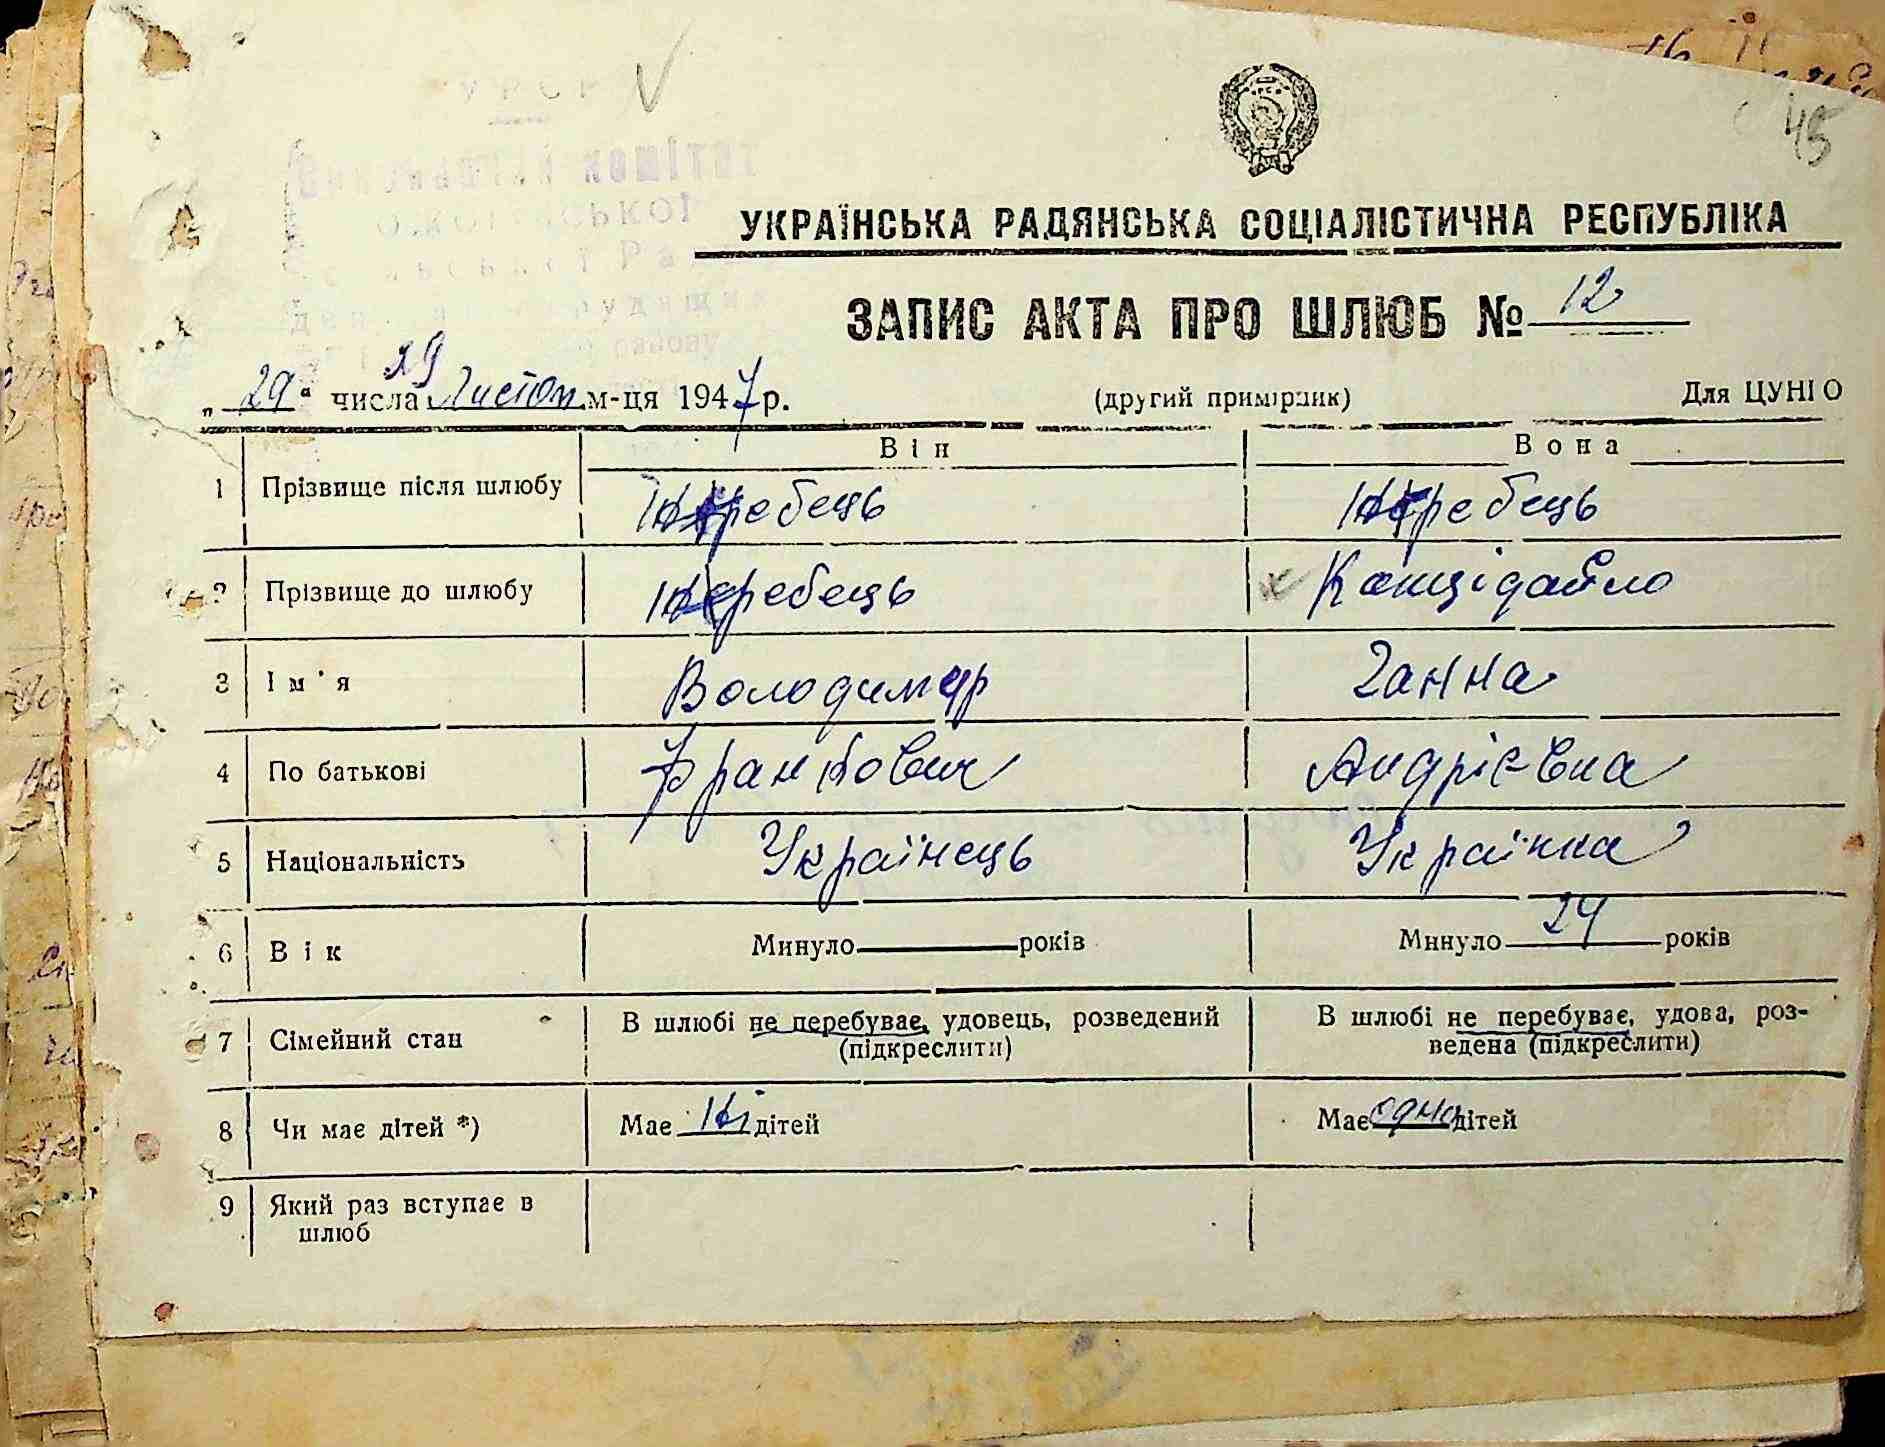 УРСР
Виконавчий комітет
45
УКРАЇНСЬКА РАДЯНСЬКА СОЦІАЛІСТИЧНА РЕСПУБЛІКА
ЗАПИС АКТА ПРО ШЛЮБ № 12
29
„ 29 “ числа Листоп. м-ця 1947 р. (другий примірник) Для ЦУНІО
Він Вона
1 Прізвище після шлюбу
2 Прізвище до шлюбу
3 Ім'я Володимир Ганна
4 По батькові Франкович Андрієвна
5 Національність Українець Українка
6 Вік Минуло років Минуло 24 років
7 Сімейний стан В шлюбі не перебуває, удовець, розведений (підкреслити) В шлюбі не перебуває, удова, роз-
ведена (підкреслити)
8 Чи має дітей *) Має Ні дітей Має одна дітей
9 Який раз вступає в
шлюб